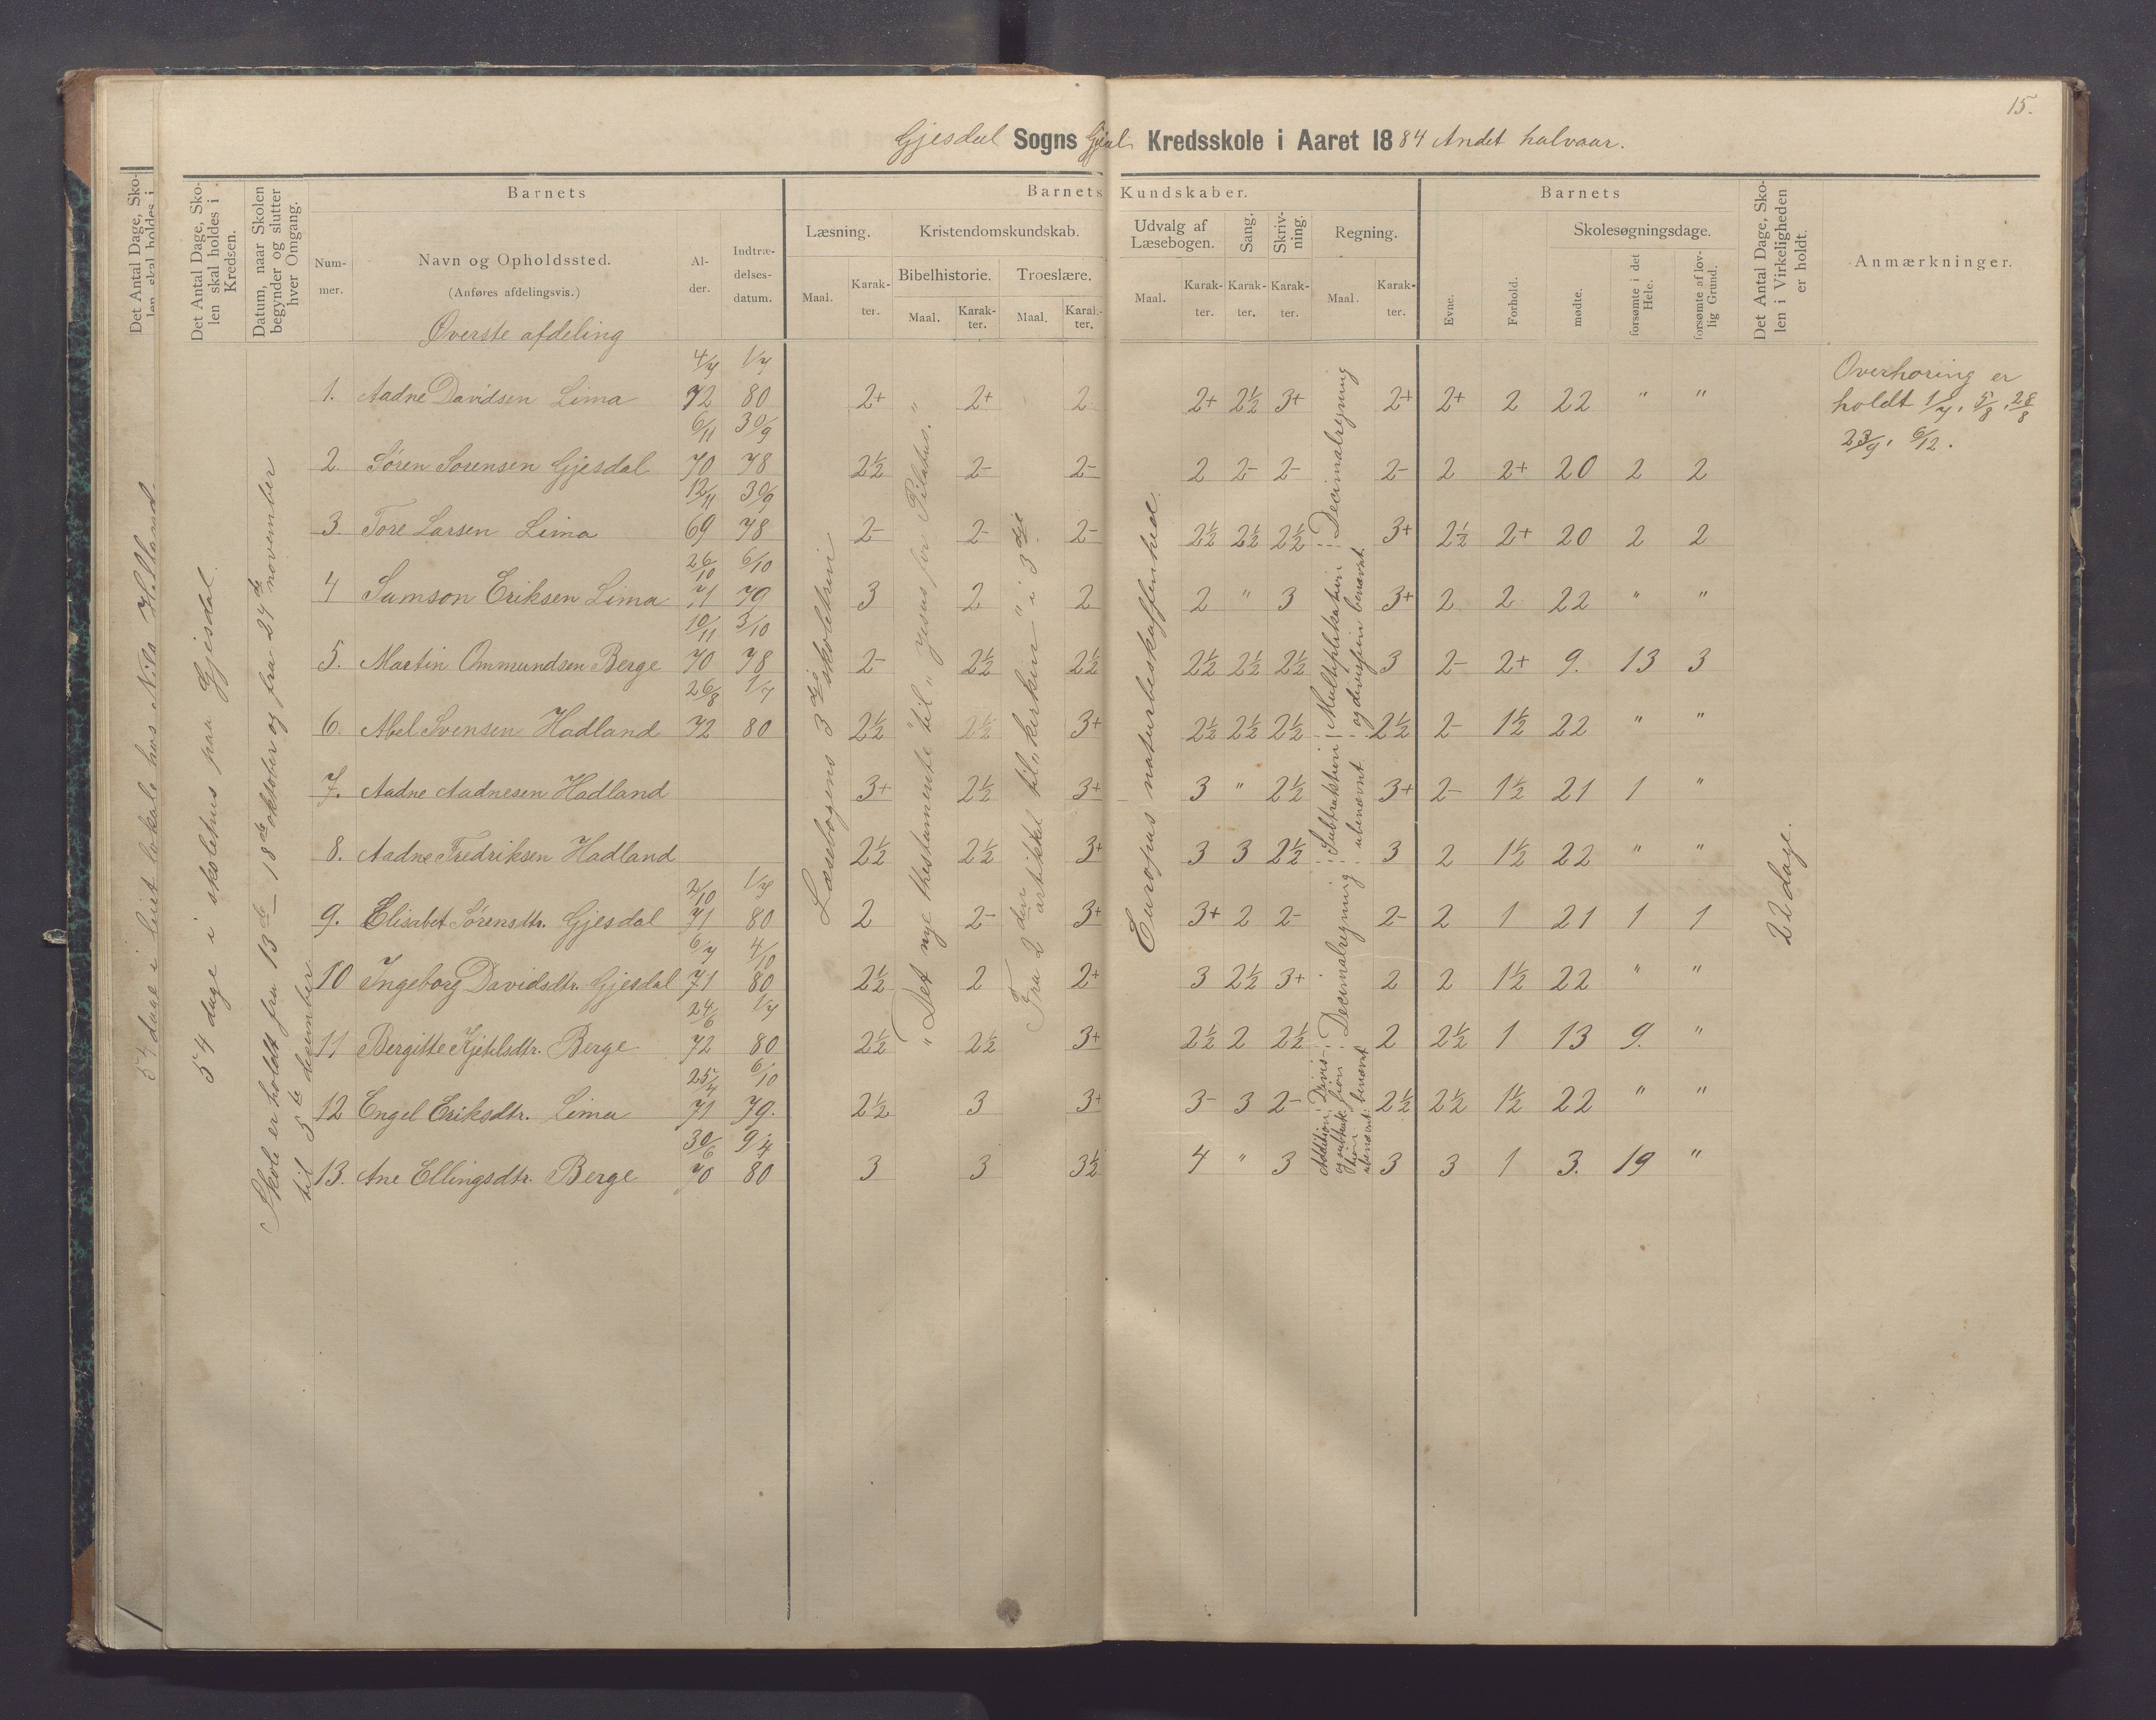 15.
Gjesdal Sogns Gjesdal Kredsskole i Aaret 1884 Andet halvaar.
Det Antal Dage, Sko-
len skal holdes i
Det Antal Dage, Sko-
len skal holdes i
Kredsen.
Datum, naar Skolen
begynder og slutter
hver Omgang.
Barnets
Num-
mer.
Navn og Opholdssted.
(Anføres afdelingsvis.)
Al-
der.
Indtræ-
delses-
datum.
Barnets Kundskaber.
Læsning.
Maal.
Karak-
ter.
Kristendomskundskab.
Bibelhistorie.
Maal.
Karak-
ter.
Troeslære.
Maal.
Karak-
ter.
Udvalg af
Læsebogen.
Maal.
Karak-
ter.
Sang.
Karak-
ter.
Skriv-
ning.
Karak-
ter.
Regning.
Maal.
Karak-
ter.
Barnets
Evne.
Forhold.
Skolesøgningsdage.
mødte.
forsømte i det
Hele.
forsømte af lov-
lig Grund.
Det Antal Dage, Sko-
len i Virkeligheden
er holdt.
Anmærkninger.
Øverste afdeling
54 dage i leiet lokale hos Nils Hetland
54 dage i skolehus paa Gjesdal.
Skole er holdt fra 13de – 18de oktober og fra 24de november
til 5te desember.
Læsebogens 3die skoletrin
"Det nye testamente" til "Jesus for Pilatus."
Fra 2den artikkel til "kirken" i 3die
Europas naturbeskaffenhed.
Decimalregning
Multiplikation
og divisjon benævnt
Subtraktion
ubenævnt
Decimalregning
Divisjon
benævnt
Addition
og subtraktion
ubenævnt
1. Aadne Davidsen Lima 4/7 72 1/7 80 2+ 2+ 2 2+ 2½ 3+ 2+ 2+ 2 22 " "
2. Søren Sørensen Gjesdal 6/11 70 30/9 78 2½ 2- 2- 2 2- 2- 2- 2 2+ 20 2 2
3. Tore Larsen Lima 12/11 69 30/9 78 2- 2- 2- 2½ 2½ 2½ 3+ 2½ 2+ 20 2 2
4 Samson Eriksen Lima 26/10 71 6/10 79 3 2 2 2 " 3 3+ 2 2 22 " "
5. Martin Ommundsen Berge 10/11 70 3/10 78 2- 2½ 2½ 2½ 2½ 2½ 3 2- 2+ 9. 13 3
6. Abel Svensen Hadland 26/8 72 1/7 80 2½ 2½ 3+ 2½ 2½ 2½ 2½ 2- 1½ 22 " "
7. Aadne Aadnesen Hadland 3+ 2½ 3+ 3 " 2½ 3+ 2- 1½ 21 1 "
8. Aadne Fredriksen Hadland 2½ 2½ 3+ 3 3 2½ 3 2 1½ 22 " "
9. Elisabet Sørensdtr. Gjesdal 2/10 71 1/7 80 2 2- 3+ 3+ 2 2- 2- 2 1 21 1 1
10 Ingeborg Davidsdtr. Gjesdal 6/7 71 4/10 80 2½ 2 2+ 3 2½ 3+ 2 2 1½ 22 " "
11 Bergitte Kjetilsdtr. Berge 24/6 72 1/7 80 2½ 2½ 3+ 2½ 2 2½ 2 2½ 1 13 9. "
12 Engel Eriksdtr. Lima 25/4 71 6/10 79. 2½ 3 3+ 3- 3 2- 2½ 2½ 1½ 22 " "
13. Ane Ellingsdtr. Berge 30/6 70 9/4 80 3 3 3½ 4 " 3 3 3 1 3. 19 "
22 dage.
Overhøring er
holdt 1/7, 5/8, 28/8
23/9, 6/12.